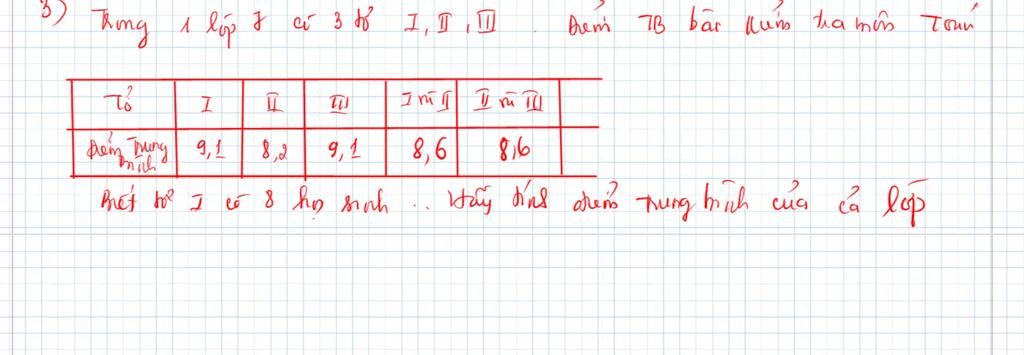 3) Trong 1 lớp 7 có 3 tổ I, II, III. Điểm TB bài kiểm tra môn Toán
Tổ I II III I và II II và III
Điểm Trung bình 9,1 8,2 9,1 8,6 8,6
Biết tổ I có 8 học sinh .. Hãy tính điểm trung bình của cả lớp